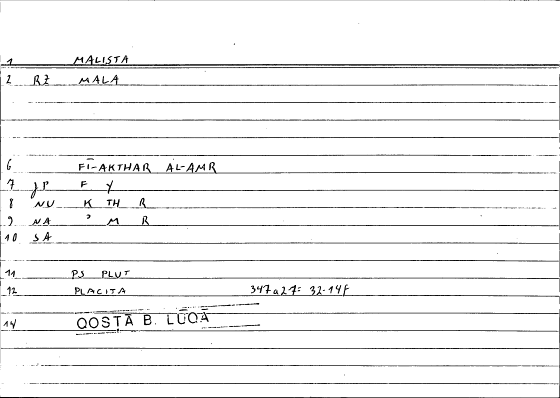 1 MALISTA
2 RŽ MALA
6 FĪ-AKTHAR AL-AMR
7 JP F Y
8 NU K TH R
9 NA ʾ M R
10 SA
11 PS PLUT
12 PLACITA 347a27: 32-14f
14 QOSṬĀ B. LŪQĀ